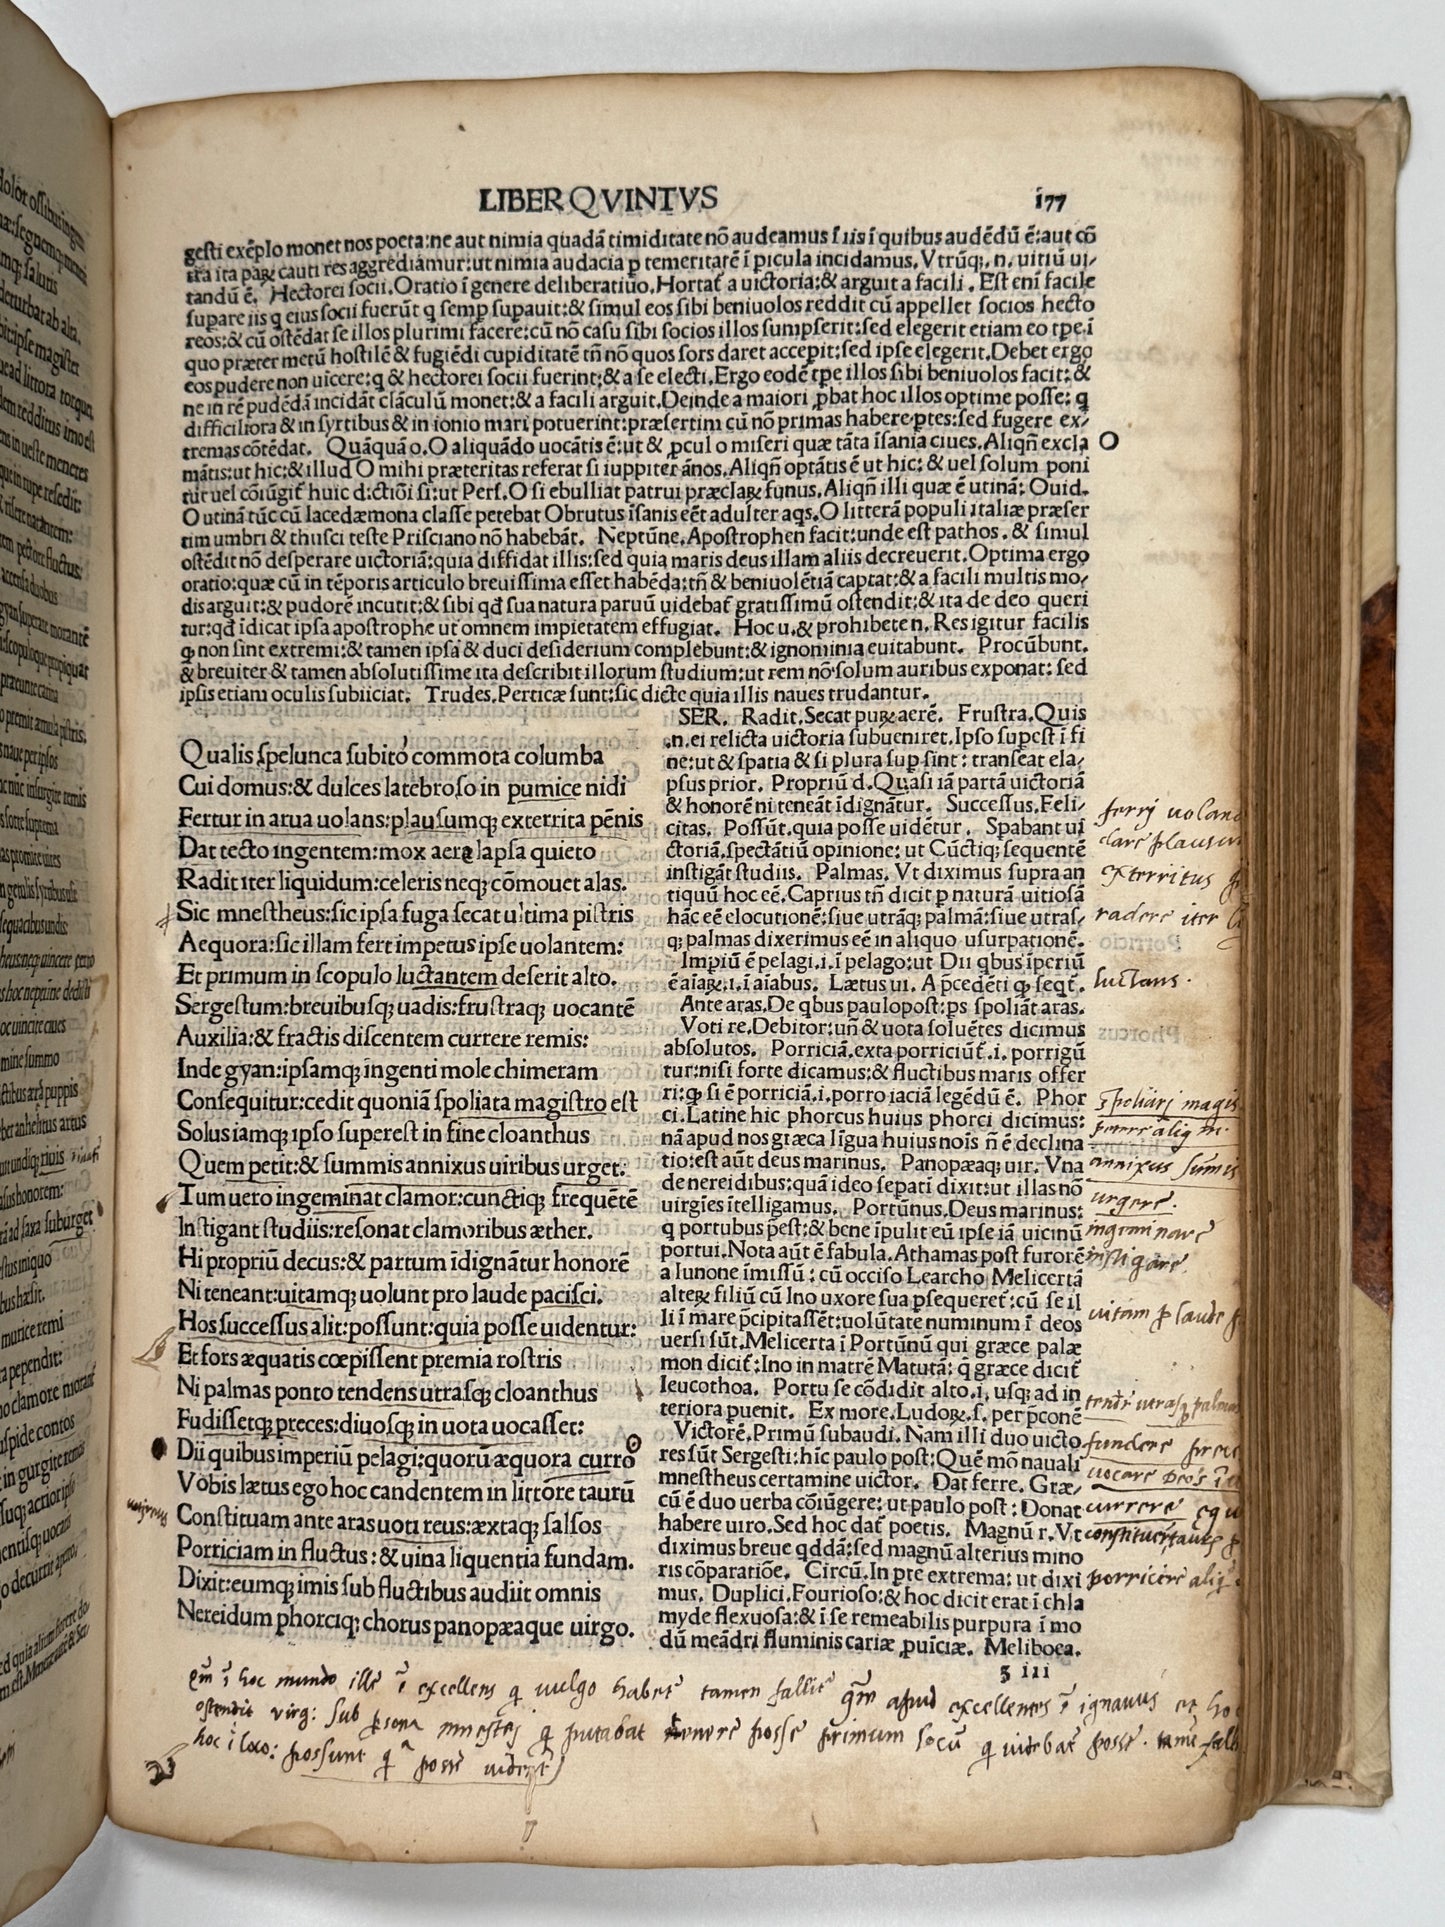 LIBER QVINTVS
177
gesti exẽplo monet nos poeta:ne aut nimia quadã timiditate nõ audeamus ĩ iis ĩ quibus audẽdũ ẽ:aut cõ
tra ita paꝝ cauti res aggrediamur:ut nimia audacia p temeritatẽ ĩ picula incidamus.Vtrũq;.n.uitiũ ui/
tandũ ẽ. Hectorei socii.Oratio ĩ genere deliberatiuo.Hortat̃ a uictoria:& arguit a facili. Est enĩ facile
supare iis q eius socii fuerũt q semp supauit:& simul eos sibi beniuolos reddit cũ appellet socios hecto
reos:& cũ ostẽdat se illos plurimi facere:cũ nõ casu sibi socios illos sumpserit:sed elegerit etiam eo tpe.ĩ
quo præter metũ hostilẽ & fugiẽdi cupiditatẽ tñ nõ quos sors daret accepit:sed ipse elegerit.Debet ergo
eos pudere non uicere:q & hectorei socii fuerint:& a se electi.Ergo eodẽ tpe illos sibi beniuolos facit:&
ne in rẽ pudẽdã incidãt clãculũ monet:& a facili arguit.Deinde a maiori ꝓbat hoc illos optime posse: q
difficiliora & in syrtibus & in ionio mari potuerint:præsertim cũ nõ primas habere ptes:sed fugere ex/
tremas cõtẽdat. Quãquã o.O aliquãdo uocãtis ẽ:ut & ꝓcul o miseri quæ tãta ĩsania ciues.Aliqñ excla
mãtis:ut hic:& illud O mihi præteritas referat si iuppiter ãnos.Aliqñ optãtis ẽ ut hic: & uel solum poni
tur uel cõiũgit̃ huic dictiõi si:ut Pers.O si ebulliat patrui præclaꝝ funus.Aliqñ illi quæ ẽ utinã: Ouid.
O utinã tũc cũ lacedæmona classe petebat Obrutus ĩsanis eẽt adulter aqs.O litterã populi italiæ præser
tim umbri & thusci teste Prisciano nõ habebãt. Neptũne.Apostrophen facit:unde est pathos. & simul
ostẽdit nõ desperare uictoriã:quia diffidat illis:sed quia maris deus illam aliis decreuerit.Optima ergo
oratio:quæ cũ in tẽporis articulo breuissima esset habẽda:tñ & beniuolẽtiã captat:& a facili multis mo/
dis arguit:& pudorẽ incutit:& sibi qđ sua natura paruũ uidebat̃ gratissimũ ostendit:& ita de deo queri
tur:qđ ĩdicat ipsa apostrophe ut omnem impietatem effugiat. Hoc u.& prohibete n. Res igitur facilis
ꝙ non sint extremi:& tamen ipsã & duci desiderium complebunt:& ignominia euitabunt. Procũbunt.
& breuiter & tamen absolutissime ita describit illorum studium:ut rem nõ solum auribus exponat: sed
ipsis etiam oculis subiiciat. Trudes.Perticæ sunt:sic dicte quia illis naues trudantur.
Qualis spelunca subito commota columba
Cui domus:& dulces latebroso in pumice nidi
Fertur in arua uolans:plausumq; exterrita pẽnis
Dat tecto ingentem:mox aere lapsa quieto
Radit iter liquidum:celeris neq; cõmouet alas.
Sic mnestheus:sic ipsa fuga secat ultima pistris
Aequora:sic illam fert impetus ipse uolantem:
Et primum in scopulo luctantem deserit alto.
Sergestum:breuibusq; uadis:frustraq; uocantẽ
Auxilia:& fractis discentem currere remis:
Inde gyan:ipsamq; ingenti mole chimeram
Consequitur:cedit quoniã spoliata magistro est
Solus iamq; ipso superest in fine cloanthus
Quem petit:& summis annixus uiribus urget.
Tum uero ingeminat clamor:cunctiq; frequẽtẽ
Instigant studiis:resonat clamoribus æther.
Hi propriũ decus:& partum ĩdignãtur honorẽ
Ni teneant:uitamq; uolunt pro laude pacisci.
Hos successus alit:possunt:quia posse uidentur:
Et fors æquatis cœpissent premia rostris
Ni palmas ponto tendens utrasq; cloanthus
Fudissetq; preces:diuosq; in uota uocasset:
Dii quibus imperiũ pelagi:quorũ æquora curro
Vobis lætus ego hoc candentem in littore taurũ
Constituam ante aras uoti reus:æxtaq; salsos
Porriciam in fluctus:& uina liquentia fundam.
Dixit:eumq; imis sub fluctibus audiit omnis
Nereidum phorciq; chorus panopæaque uirgo.
SER. Radit.Secat puꝝ aerẽ. Frustra.Quis
.n.ei relicta uictoria subueniret.Ipso supest ĩ fi
ne:ut & spatia & si plura sup sint: transeat ela/
psus prior. Propriũ d.Quasi iã partã uictoriã
& honorẽ ni teneãt ĩdignãtur. Successus.Feli/
citas. Possũt.quia posse uidẽtur. Spabant ui
ctoriã.spectãtiũ opinione: ut Cũctiq; sequentẽ
instigãt studiis. Palmas. Vt diximus supra an
tiquũ hoc eẽ.Caprius tñ dicit p naturã uitiosã
hãc eẽ elocutionẽ:siue utrãq; palmã:siue utras/
q; palmas dixerimus eẽ in aliquo usurpationẽ.
Impiũ ẽ pelagi.i.ĩ pelago:ut Dii qbus ĩperiũ
ẽ aiaꝝ.i.ĩ aiabus. Lætus ui. A p̃cedẽti ꝙ seqt̃.
Ante aras.De qbus paulopost:ps spoliãt aras.
Voti re.Debitor:uñ & uota soluẽtes dicimus
absolutos. Porriciã.exta porriciũt̃.i. porrigũ
tur:nisi forte dicamus:& fluctibus maris offer
ri:ꝙ si ẽ porriciã.i.porro iaciã legẽdũ ẽ. Phor
ci.Latine hic phorcus huius phorci dicimus:
nã apud nos græca lĩgua huius noĩs ñ ẽ declina
tio:est aũt deus marinus. Panopæaq; uir. Vna
de nereidibus:quã ideo sepatĩ dixit:ut illas nõ
uirgĩes ĩtelligamus. Portũnus.Deus marinus:
q portubus p̃est:& bene ĩpulit eũ ipse iã uicinũ
portui.Nota aũt ẽ fabula.Athamas post furorẽ
a Iunone ĩmissũ: cũ occiso Learcho Melicertã
alteꝝ filiũ cũ Ino uxore sua psequeret̃:cũ se il
li ĩ mare p̃cipitassẽt:uolũtate numinum ĩ deos
uersi sũt.Melicerta ĩ Portũnũ qui græce palæ
mon dicit̃:Ino in matrẽ Matutã: q̃ græce dicit̃
leucothoa. Portu se cõdidit alto.i. usq; ad in
teriora puenit. Ex more.Ludoꝝ.s. per p̃conẽ
Victorẽ.Primũ subaudi. Nam illi duo uicto
res sũt Sergesti:hĩc paulo post:Quẽ mõ nauali
mnestheus certamine uictor. Dat ferre. Græ/
cũ ẽ duo uerba cõiũgere: ut paulo post: Donat
habere uiro.Sed hoc dat̃ poetis. Magnũ r. Vt
diximus breue qddã:sed magnũ alterius mino
ris cõparatiõe. Circũ.In pte extrema: ut dixi
mus. Duplici.Fourioso:& hoc dicit erat ĩ chla
myde flexuosa:& ĩ se remeabilis purpura ĩ mo
dũ meãdri fluminis cariæ ꝓuiciæ. Meliboea.
ʒ iii
ferrj
exterritus
radere iter
luctans.
spoliarj magis
annixus sũmis
urgere.
ingeminare
instigare.
uitam p laude
fundere
currere
porricere aliq
Qm̃ ĩ hoc mundo ille ẽ excellens q uulgo habet̃ tamen fallit̃ qm̃ apud excellentes ẽ ignauus et hoc
ostendit virg: sub psona mnestej q putabat uenere posse primum locũ q uidebat̃ posse. tamẽ
hoc ĩ loco: possunt qa posse uident̃